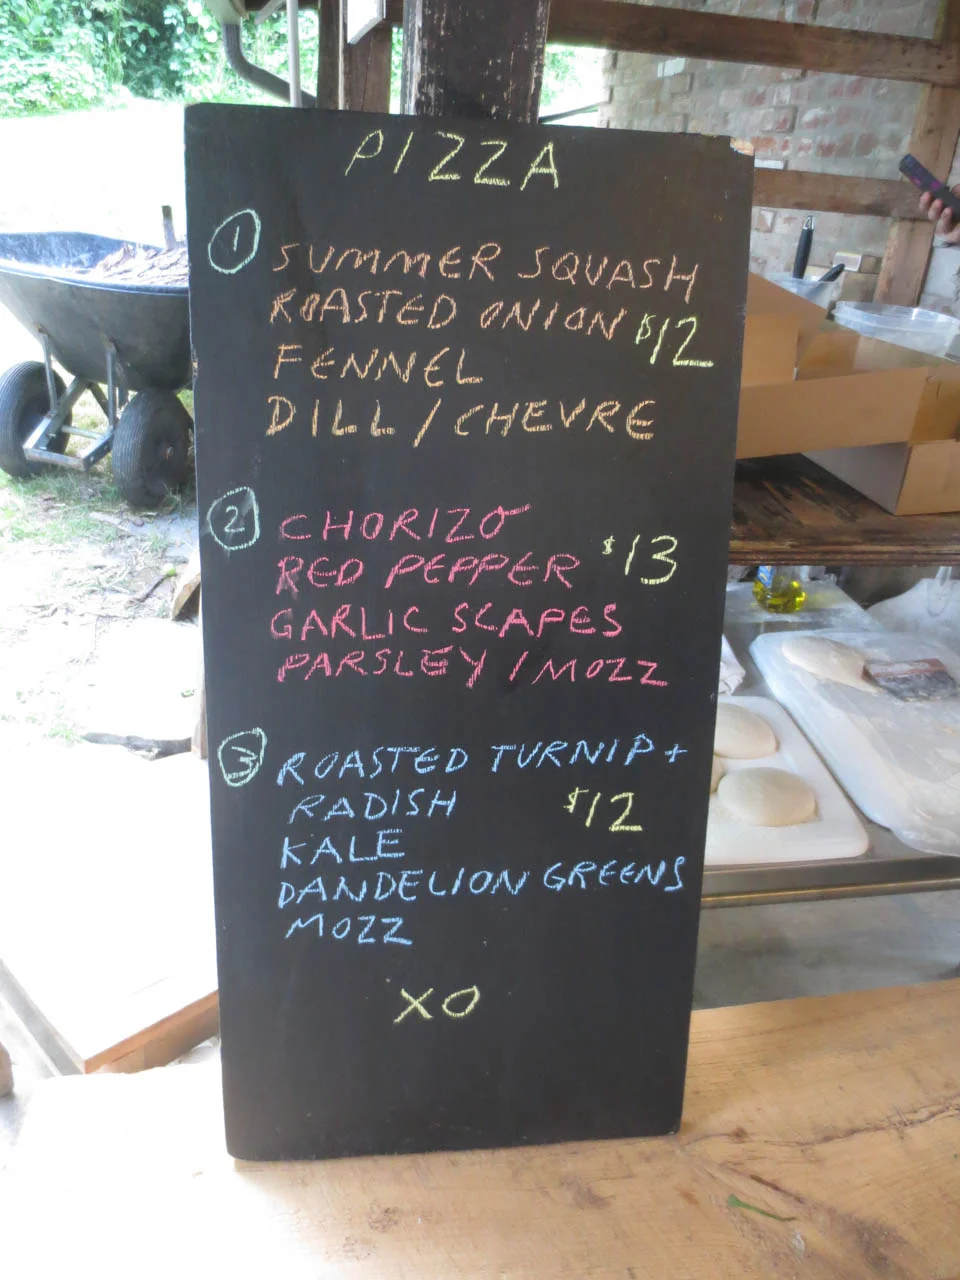 PIZZA
1 SUMMER SQUASH
ROASTED ONION $12
FENNEL
DILL / CHEVRE
2 CHORIZO
RED PEPPER $13
GARLIC SCAPES
PARSLEY / MOZZ
3 ROASTED TURNIP +
RADISH $12
KALE
DANDELION GREENS
MOZZ
XO